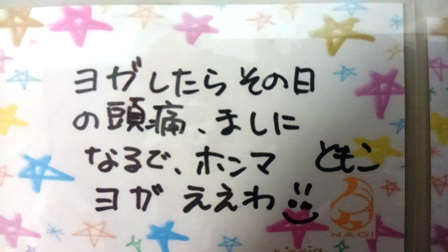 ヨガしたら その日
の頭痛、ましに
なるで、ホンマ ともこ
ヨガ ええわ
NAGI